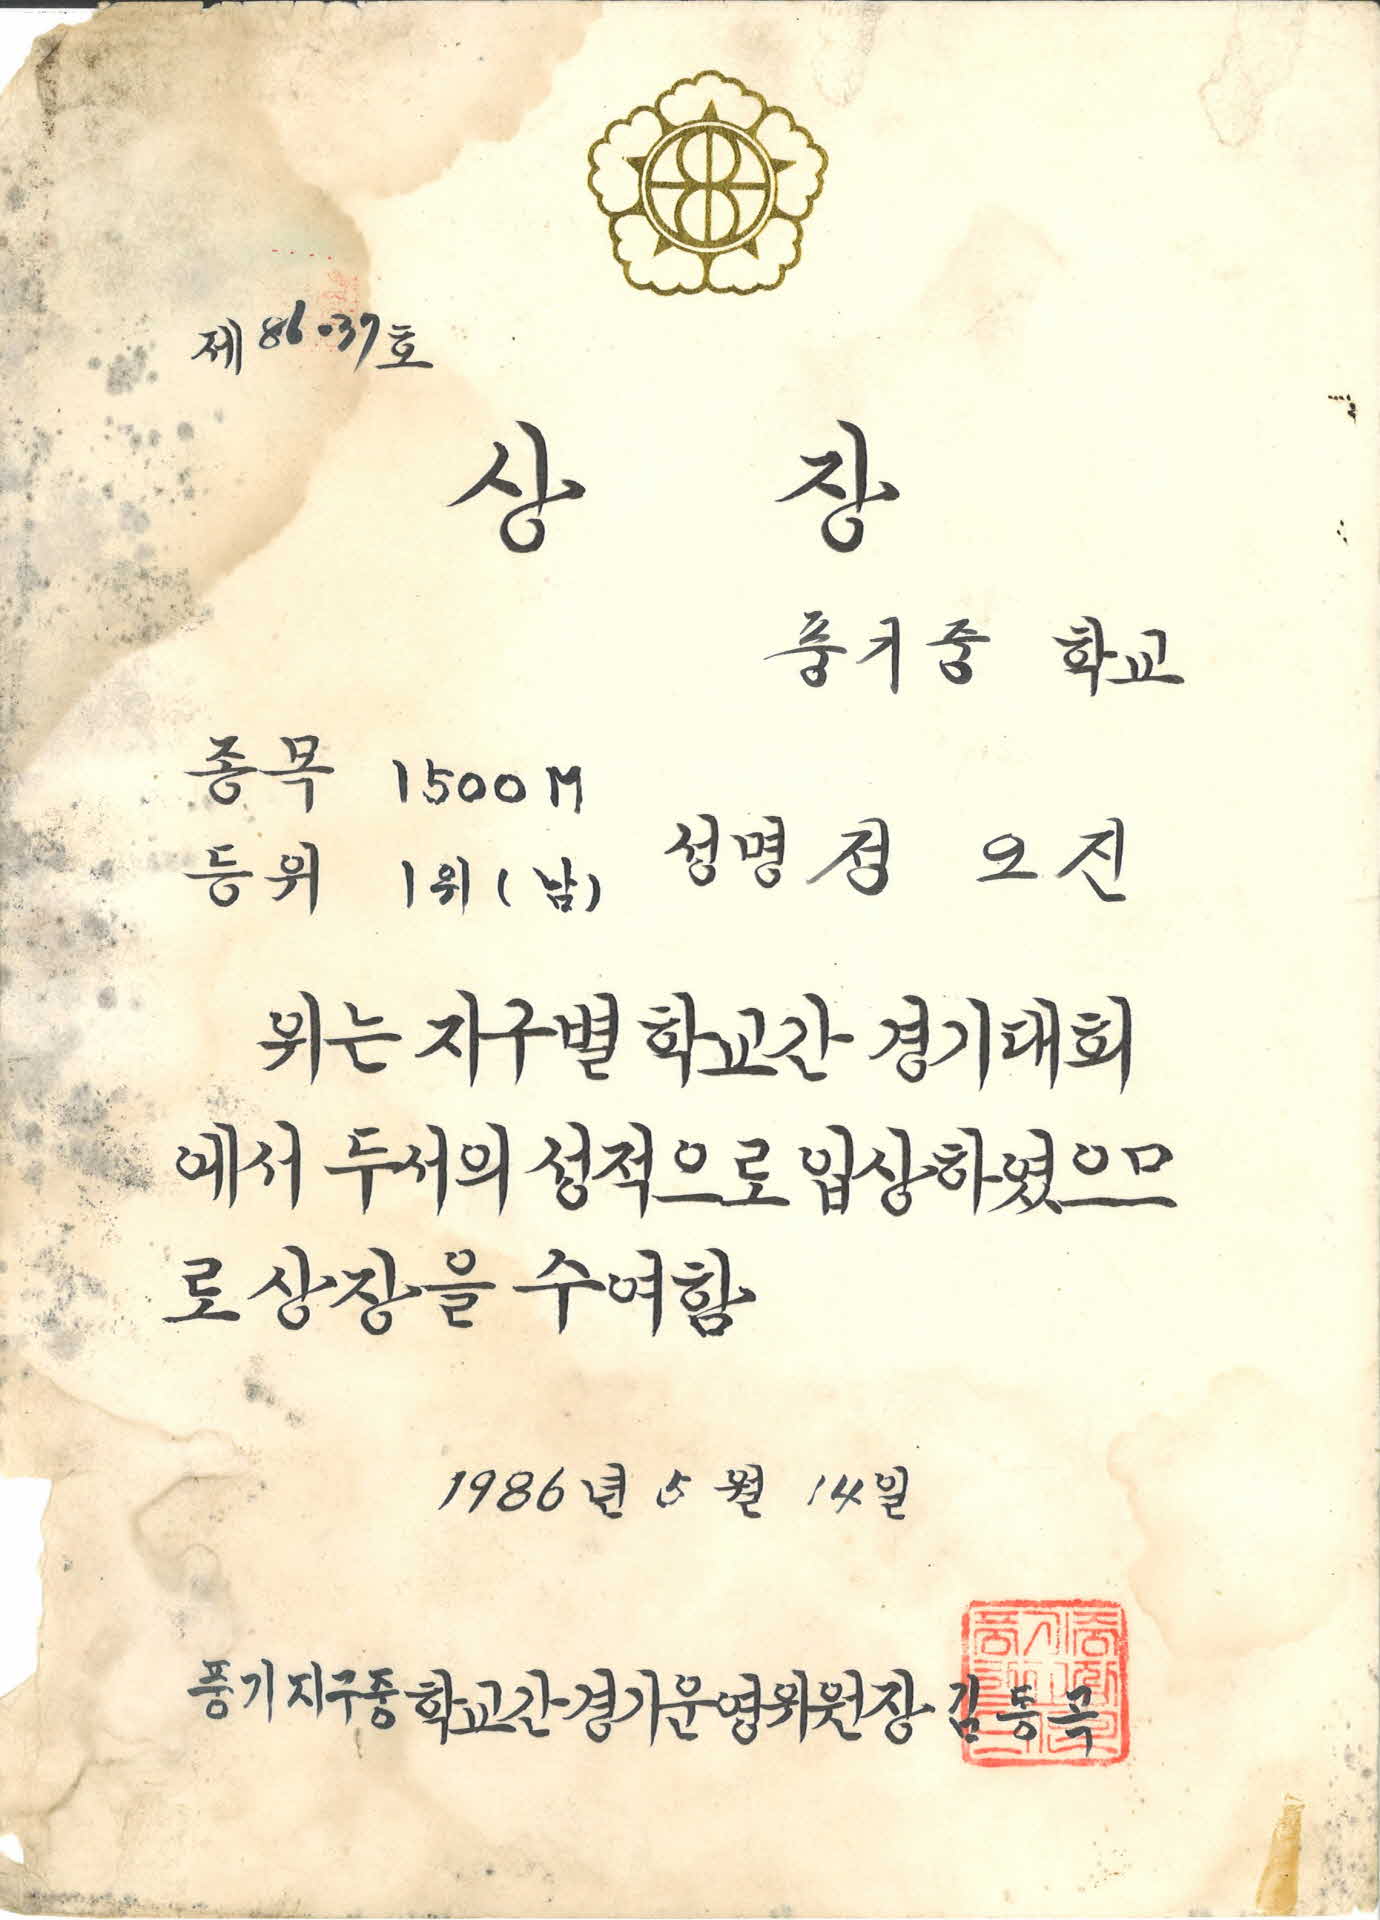 제 86-37 호
상 장
풍기중 학교
종목 1500M
등위 1위 (남) 성명 정 오진
위는 지구별 학교간 경기대회
에서 두서의 성적으로 입상하였으므
로 상장을 수여함
1986년 5월 14일
풍기지구중학교간경기운영위원장 김동곡